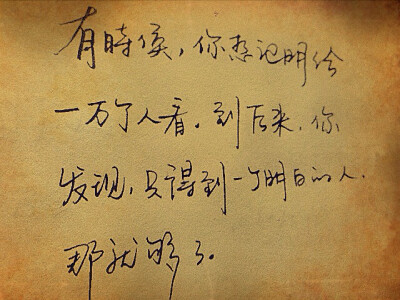 有時候，你想记明给
一万个人看。到后来，你
发现，只得到一个明白的人，
那就够了。